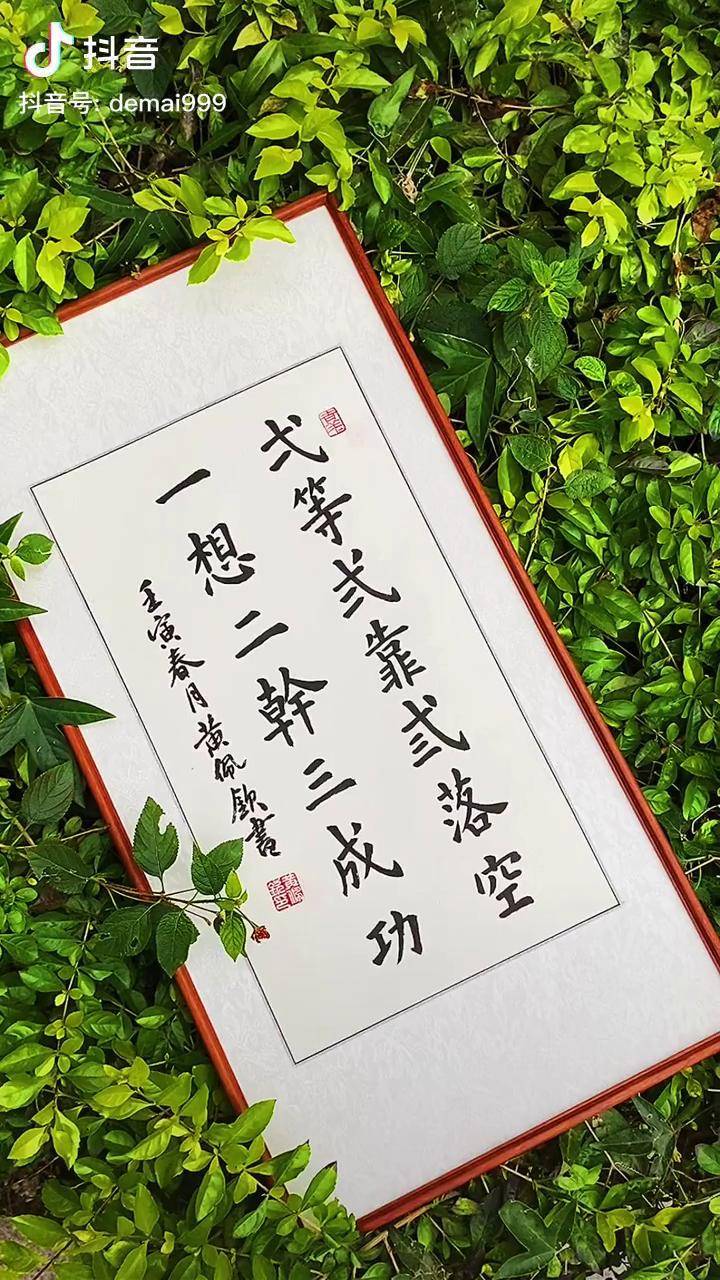 抖音
抖音号: demai999
弌等弍靠弎落空
一想二幹三成功
壬寅春月黄佩欽書